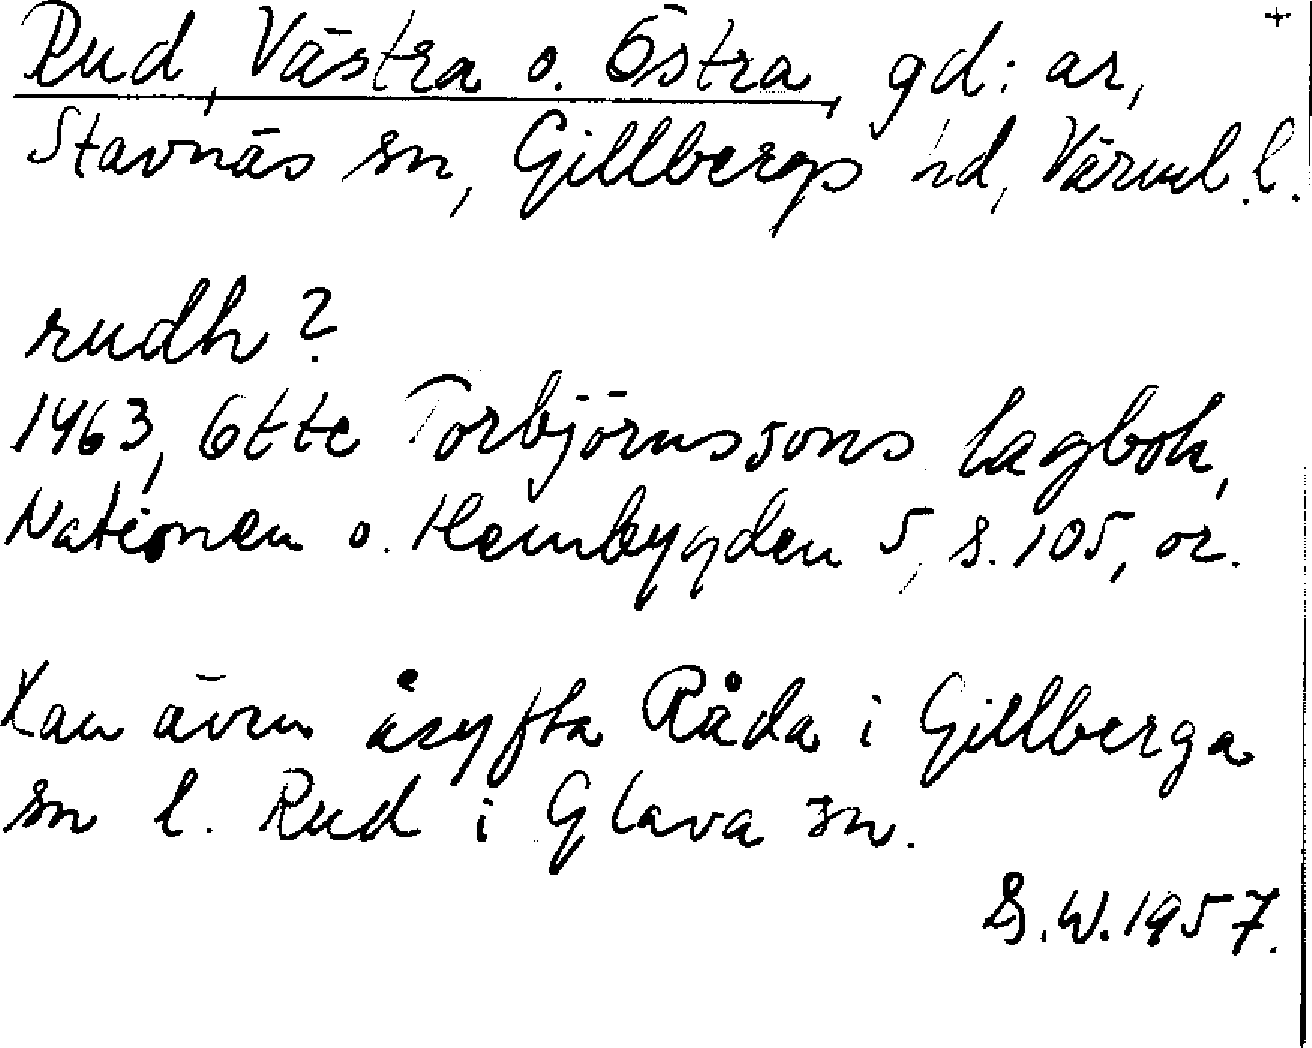 Rud, Västra o. Östra, gd:ar, +
Stavnäs sn, Gillbergs hd, Värml.l.
rudh?
1463, Otte Torbjörnssons lagbok,
Nationen o. Hembygden 5, s. 105, or.
Kan även åsyfta Råda i Gillberga
sn l. Rud i Glava sn.
S.W. 1957.